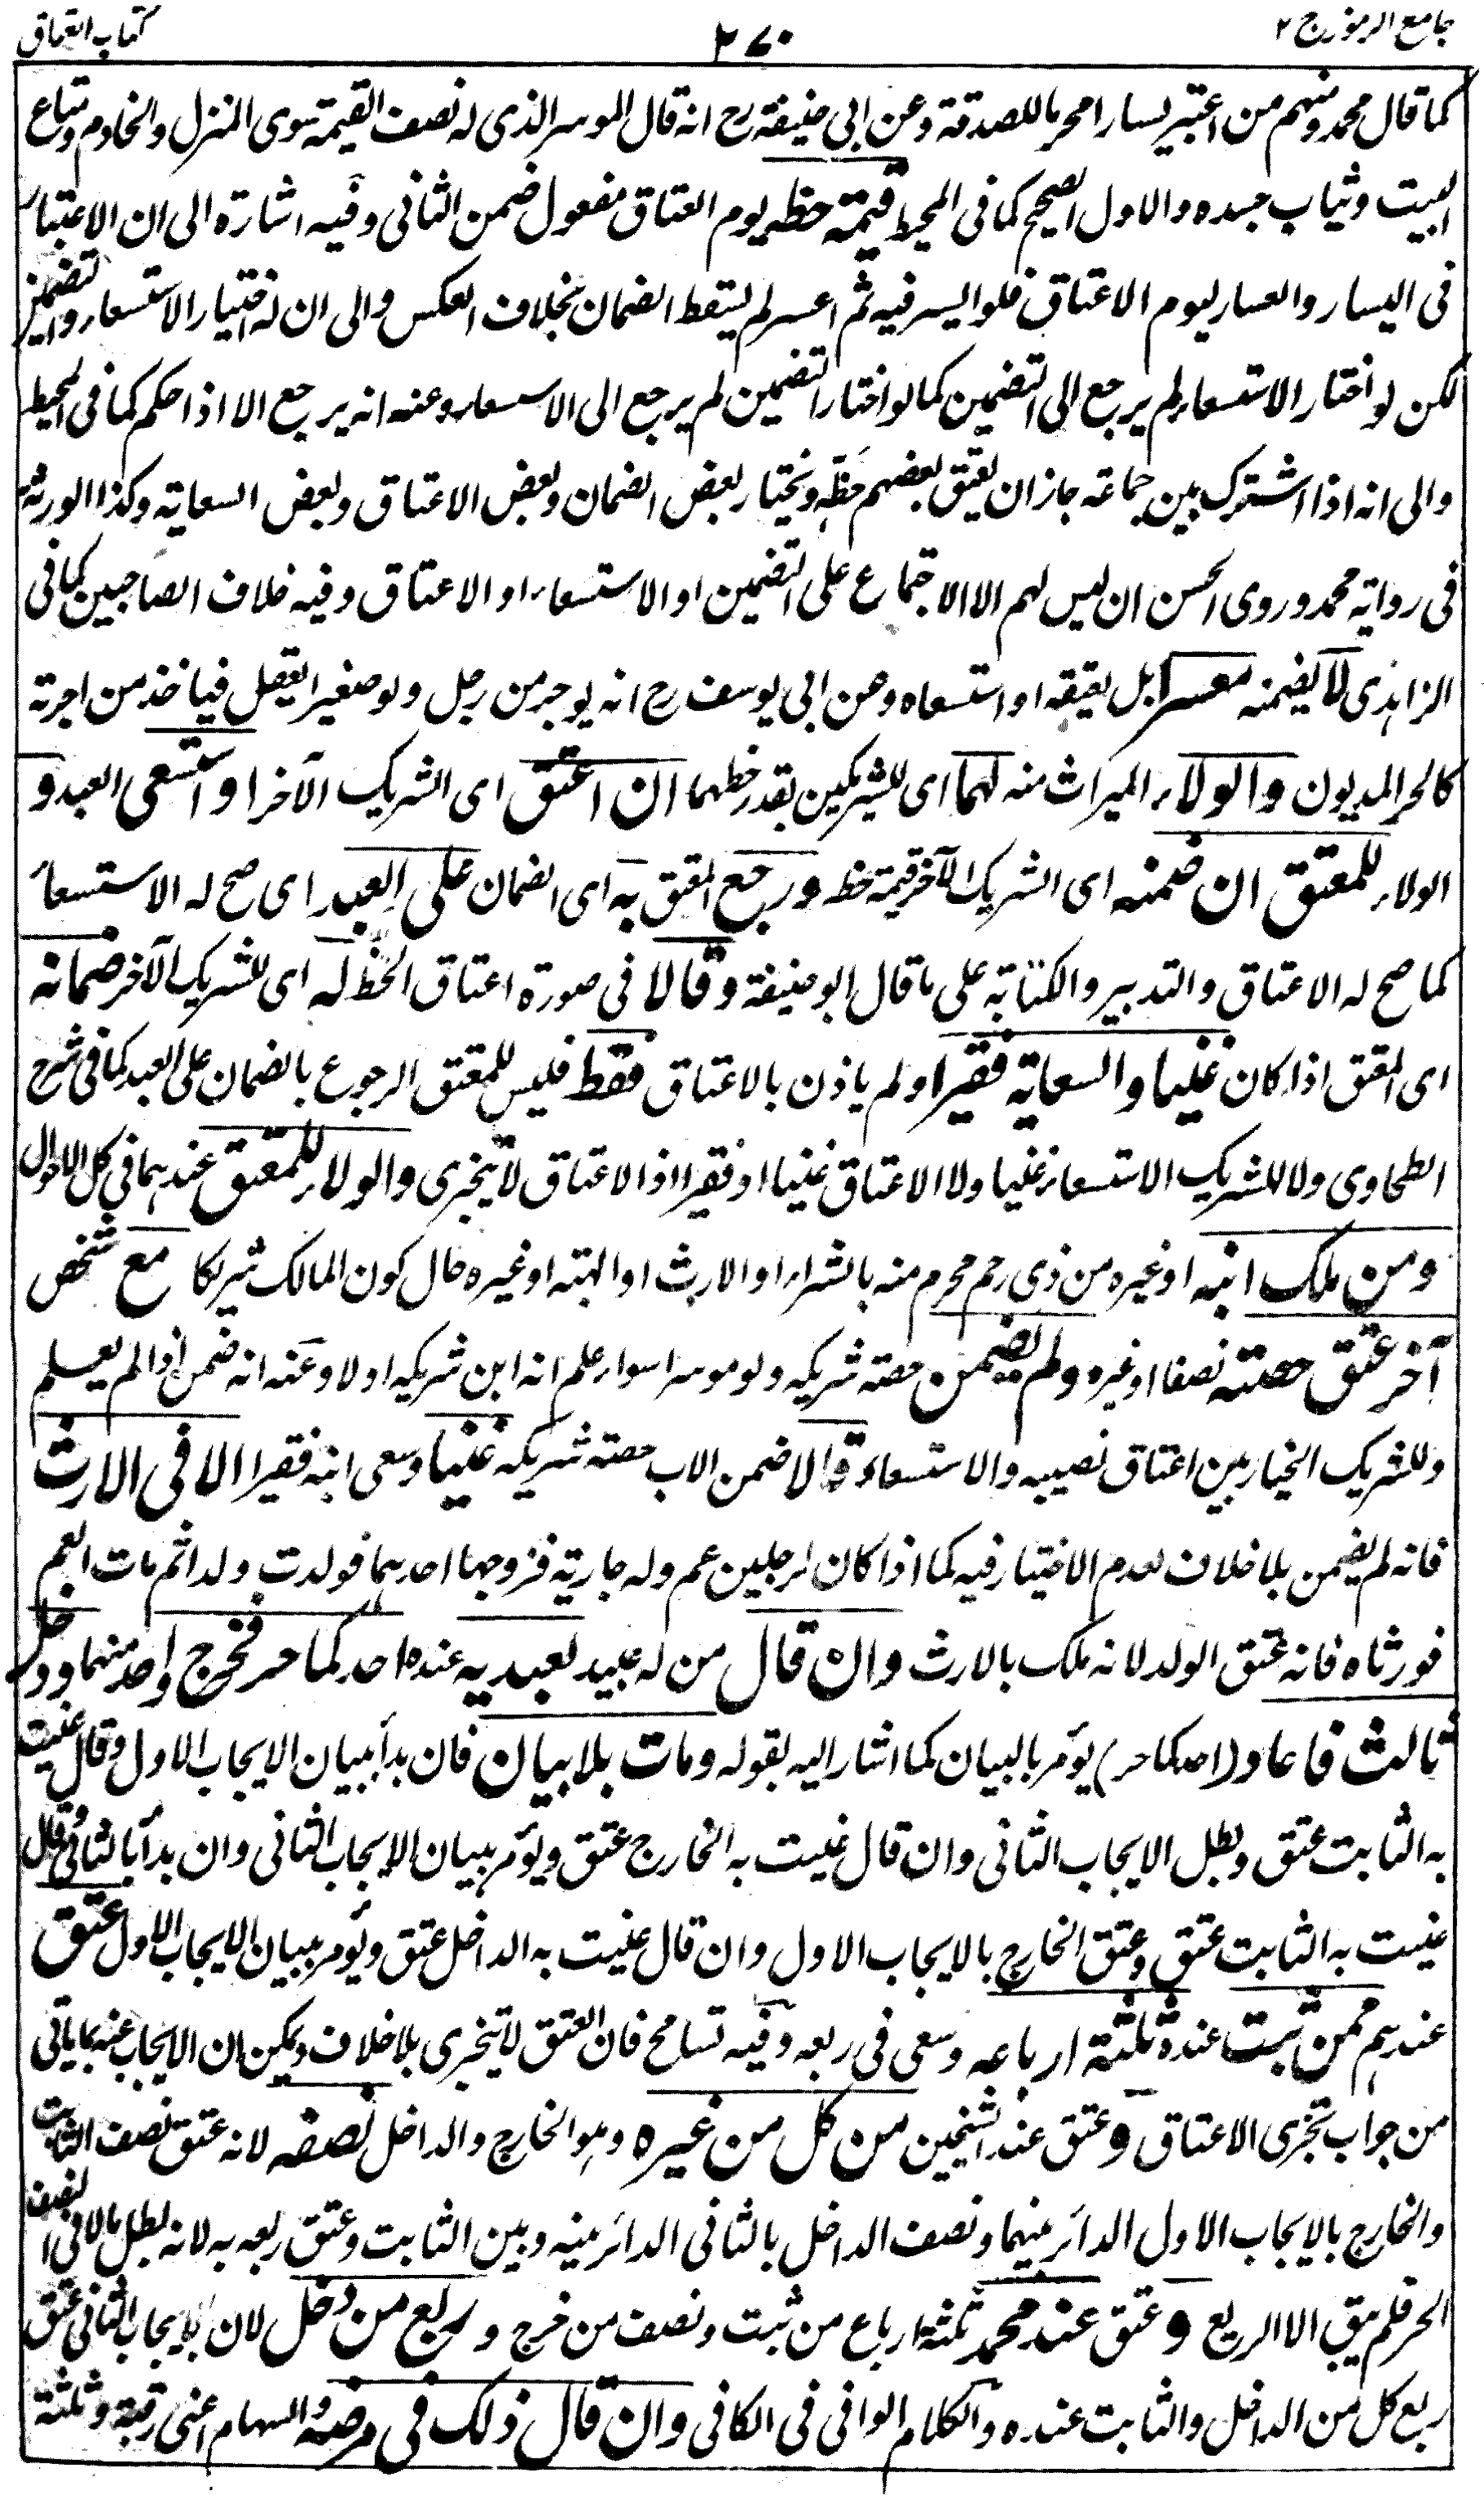 جامع الرموز ج ٢
٢٧٠
كتاب العتاق
كما قال محمد ومنهم من اعتبر يسارا محرما للصدقة وعن ابى حنيفة رح انه قال الموسر الذى له نصف القيمة سوى المنزل والخادم ومتاع
البيت وثياب جسده والاول الصحيح كما فى المحيط قيمة حظه يوم العتاق مفعول ضمن الثانى وفيه اشارة الى ان الاعتبار
فى اليسار والعسار ليوم الاعتاق فلو ايسر فيه ثم اعسر لم يسقط الضمان بخلاف العكس والى ان له اختيار الاستسعاء والتضمين
لكن لو اختار الاستسعاء لم يرجع الى التضمين كما لو اختار التضمين لم يرجع الى الاستسعاء وعنه انه يرجع الا اذا حكم كما فى المحيط
والى انه اذا اشترك بين جماعة جاز ان يعتق بعضهم حظه ويختار بعض الضمان وبعض الاعتاق وبعض السعاية وكذا الورثة
فى رواية محمد وروى الحسن ان ليس لهم الا الاجتماع على التضمين او الاستسعاء او الاعتاق وفيه خلاف الصاحبين كما فى
الزاهدى لا يضمنه معسرا بل يعتقه او استسعاه وعن ابى يوسف رح انه يوجر من رجل ولو صغيرا يعقل فياخذ من اجرته
كالحر المديون والولاء الميراث منه لهما اى للشريكين بقدر حظهما ان اعتق اى الشريك الآخر او استسعى العبد و
الولاء للمعتق ان ضمنه اى الشريك الآخر قيمة حظه ورجع المعتق به اى الضمان على العبد اى صح له الاستسعاء
كما صح له الاعتاق والتدبير والكتابة على ما قال ابو حنيفة وقالا فى صورة اعتاق الحظ له اى للشريك الآخر ضمانه
اى المعتق اذا كان غنيا والسعاية فقيرا ولم ياذن بالاعتاق فقط فليس للمعتق الرجوع بالضمان على العبد كما فى شرح
الطحاوى ولا للشريك الاستسعاء غنيا ولا الاعتاق غنيا او فقيرا اذ الاعتاق لا يتجزى والولاء للمعتق عندهما فى كل الاحوال
ومن ملك ابنه او غيره من ذى رحم محرم منه بالشراء او الارث او الهبة او غيره حال كون المالك شريكا مع شخص
آخر عتق حصته نصفا او غيره ولم يضمن حصة شريكه ولو موسرا سواء علم انه ابن شريكه او لا وعنه انه ضمن اذا لم يعلم
وللشريك الخيار بين اعتاق نصيبه والاستسعاء وقالا ضمن الاب حصة شريكه غنيا وسعى ابنه فقيرا الا فى الارث
فانه لم يضمن بلا خلاف لعدم الاختيار فيه كما اذا كان لرجلين عم وله جارية فزوجها احدهما فولدت ولدا ثم مات العم
فورثاه فانه عتق الولد لانه ملك بالارث وان قال من له عبيد لعبديه عنده احدكما حر فخرج واحد منهما ودخل
ثالث فاعاد (احدكما حر) يؤمر بالبيان كما اشار اليه بقوله ومات بلا بيان فان بدأ ببيان الايجاب الاول وقال عنيت
به الثابت عتق وبطل الايجاب الثانى وان قال عنيت به الخارج عتق ويؤمر ببيان الايجاب الثانى وان بدأ بالثانى وقال
عنيت به الثابت عتق وعتق الخارج بالايجاب الاول وان قال عنيت به الداخل عتق ويؤمر ببيان الايجاب الاول عتق
عندهم ممن ثبت عنده ثلثة ارباعه وسعى فى ربعه وفيه تسامح فان العتق لا يتجزى بلا خلاف ويمكن ان الايجاب عنه بما ياتى
من جواب تجزى الاعتاق وعتق عند الشيخين من كل من غيره وهو الخارج والداخل نصفه لانه عتق نصف الثابت
والخارج بالايجاب الاول الدائر بينهما ونصف الداخل بالثانى الدائر بينه وبين الثابت وعتق ربعه به لانه بطل ما لاقى النصف
الحر فلم يبق الا الربع وعتق عند محمد ثلثة ارباع من ثبت ونصف من خرج وربع من دخل لان بالايجاب الثانى عتق
ربع كل من الداخل والثابت عنده والكلام الوافى فى الكافى وان قال ذلك فى مرضه والسهام اعنى رقبة وثلثة